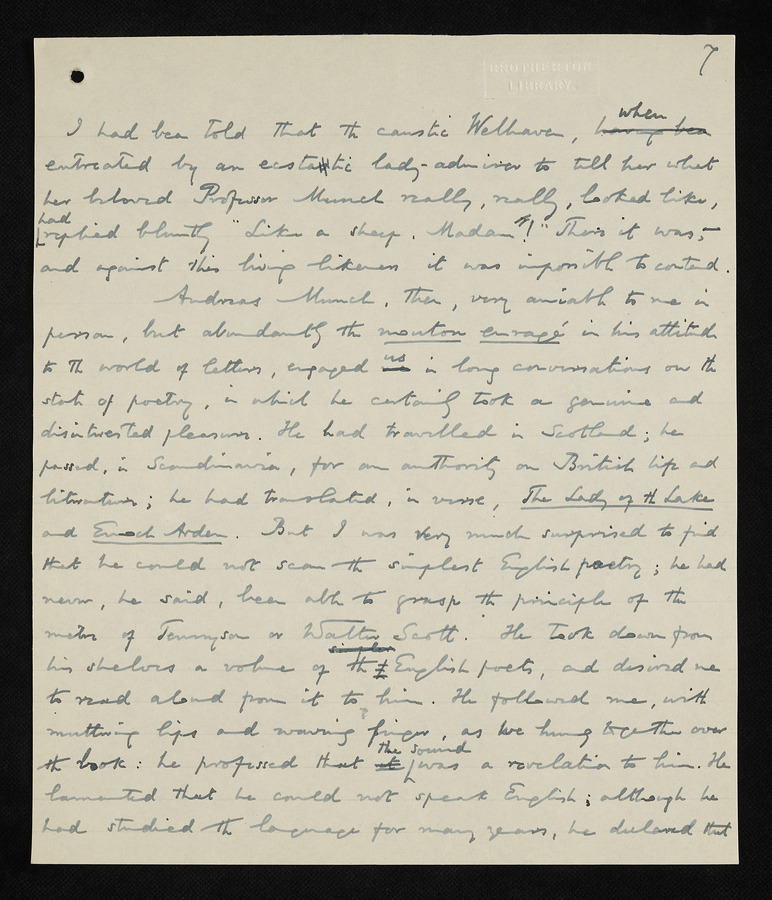 7
BROTHERTON
LIBRARY.
I had been told that the caustic Welhaven, when having been
entreated by an ecstatic lady-admirer to tell her what
her beloved Professor Munch really, really, looked like,
had replied bluntly "Like a sheep, Madam!" There it was,-
and against this living likeness it was impossible to contend.
Andreas Munch, then, very amiable to me in
person, but abundantly the mouton enragé in his attitude
to the world of letters, engaged us in long conversations on the
state of poetry, in which he certainly took a genuine and
disinterested pleasure. He had travelled in Scotland; he
passed, in Scandinavia, for an authority on British life and
literature; he had translated, in verse, The Lady of the Lake
and Enoch Arden. But I was very much surprised to find
that he could not scan the simplest English poetry; he had
never, he said, been able to grasp the principle of the
metre of Tennyson or Walter Scott. He took down from
his shelves a volume of the simpler English poets, and desired me
to read aloud from it to him. He followed me, with
muttering lips and waving finger, as we hung together over
the book: he professed that it the sound was a revelation to him. He
lamented that he could not speak English; although he
had studied the language for many years, he declared that